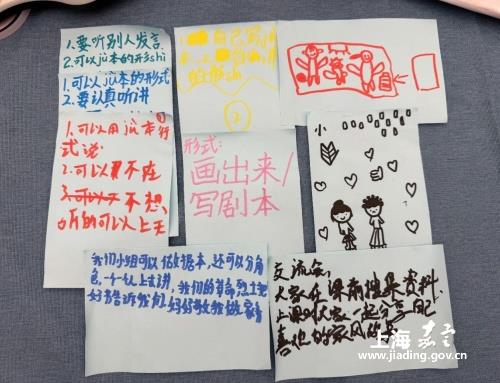 1.要听别人发言
2.可以jù本的形shì
1.可以jù本的形式
2.要认真听讲
自己写
②
1.可以用jù本形
式说
2.可以不在
3.不想
听的可以上天
形式:
画出来/
写剧本
小
我们小组可以依据本,还可以分角
色,一个人上去讲,我们的革命烈士把
好书告诉我们
交流会:
大家在课前搜集资料
上课时大家一起分享自己
喜他的家风的书
上海嘉定
www.jiading.gov.cn